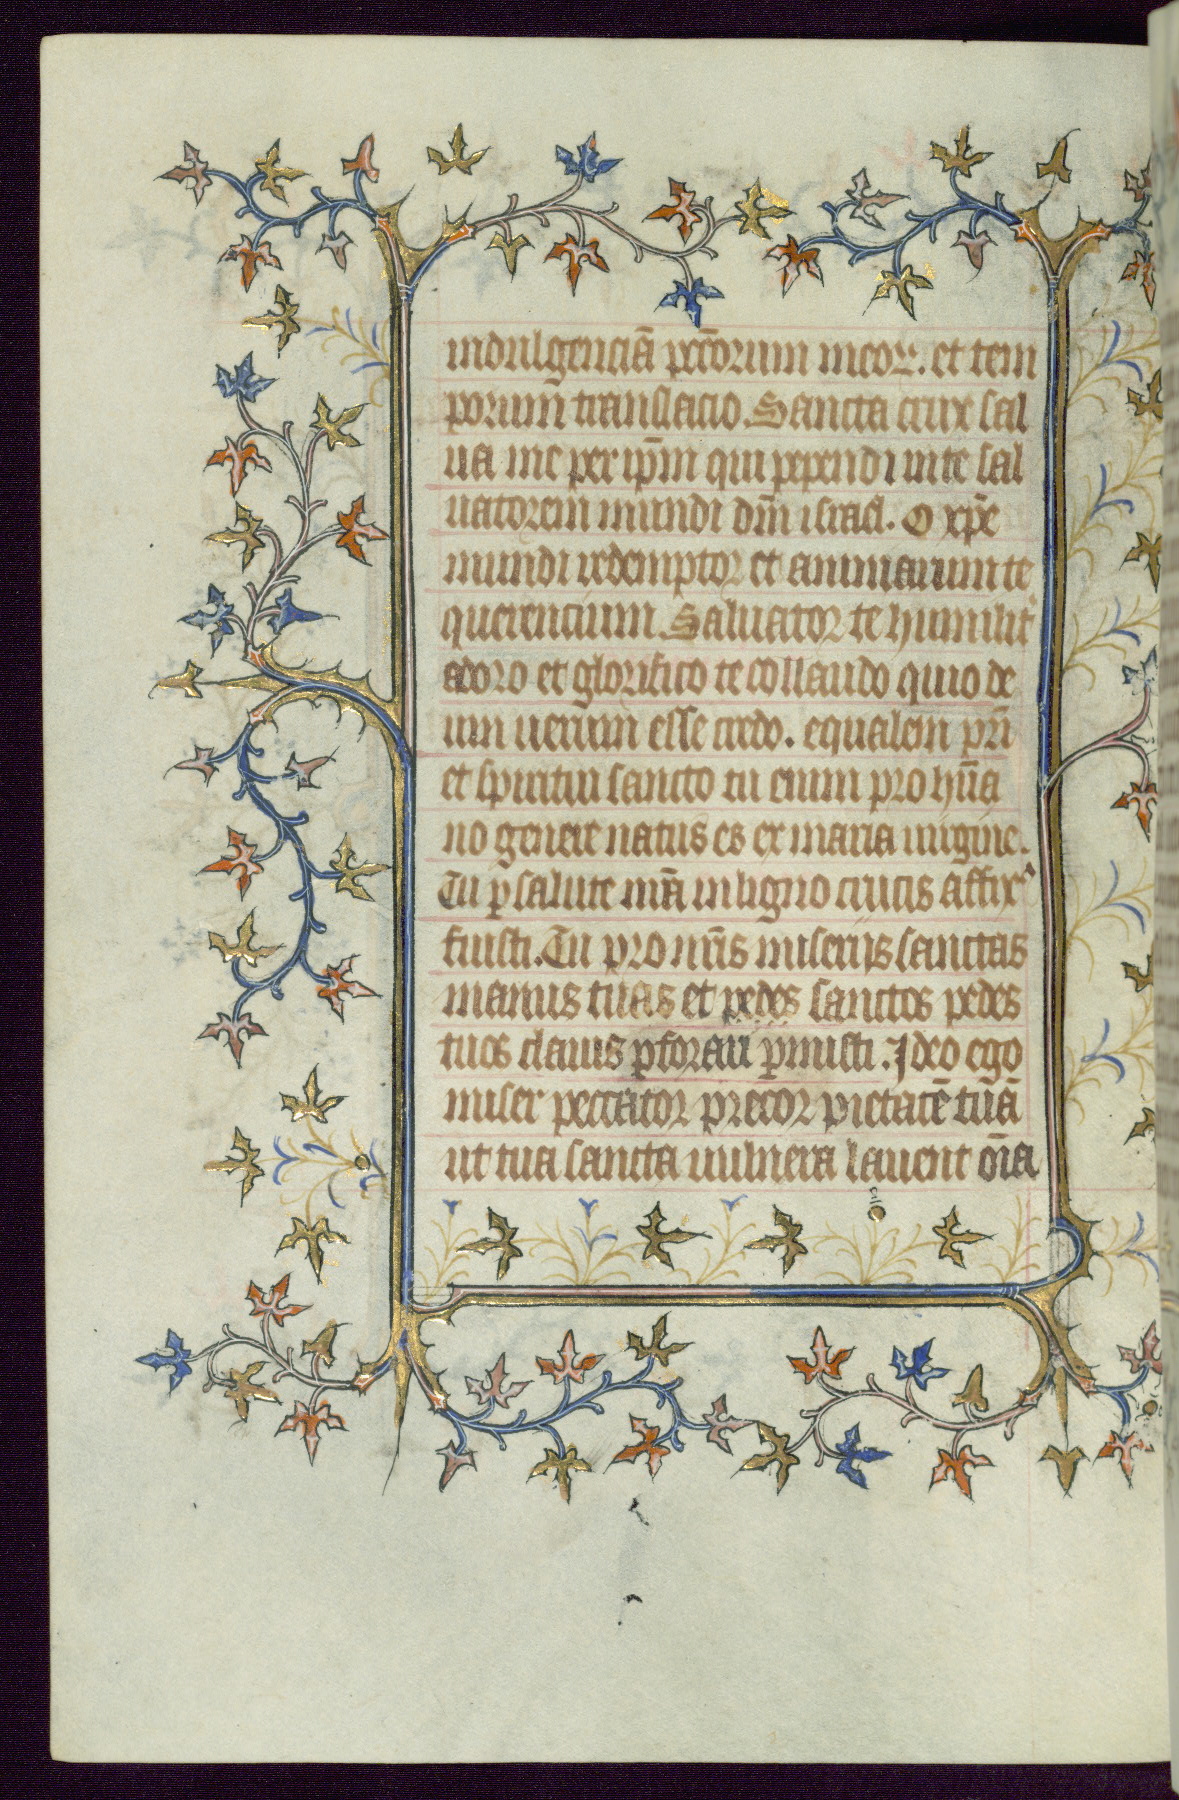 indulgenciā pccōrum meoꝝ. et tem
porum translacio. Sancta crux sal
ua me per ip̄m qui pependi in te sal
uatorem mundi dn̄m israel. O xp̄e
mundi redemptor et animarum te
querencium. Saluator te humilit᷑
adoro et glorifico te collaudo quio de
um uerum esse credo. equalem pr̄i
et spiritui sancto tu enim pro hūa
no genere natus es ex maria uirgine.
Tu ꝑ salute nr̄ā in ligno crucis affixꝰ
fuisti. Tu pro nr̄is miseriis sanctas
manus tuas et pedes sanctos pedes
tuos clauis ꝑforari ꝑmisisti. Ideo ego
miser peccator precor pietatē tuā
ut tua sancta uulnera lauent om̄ia